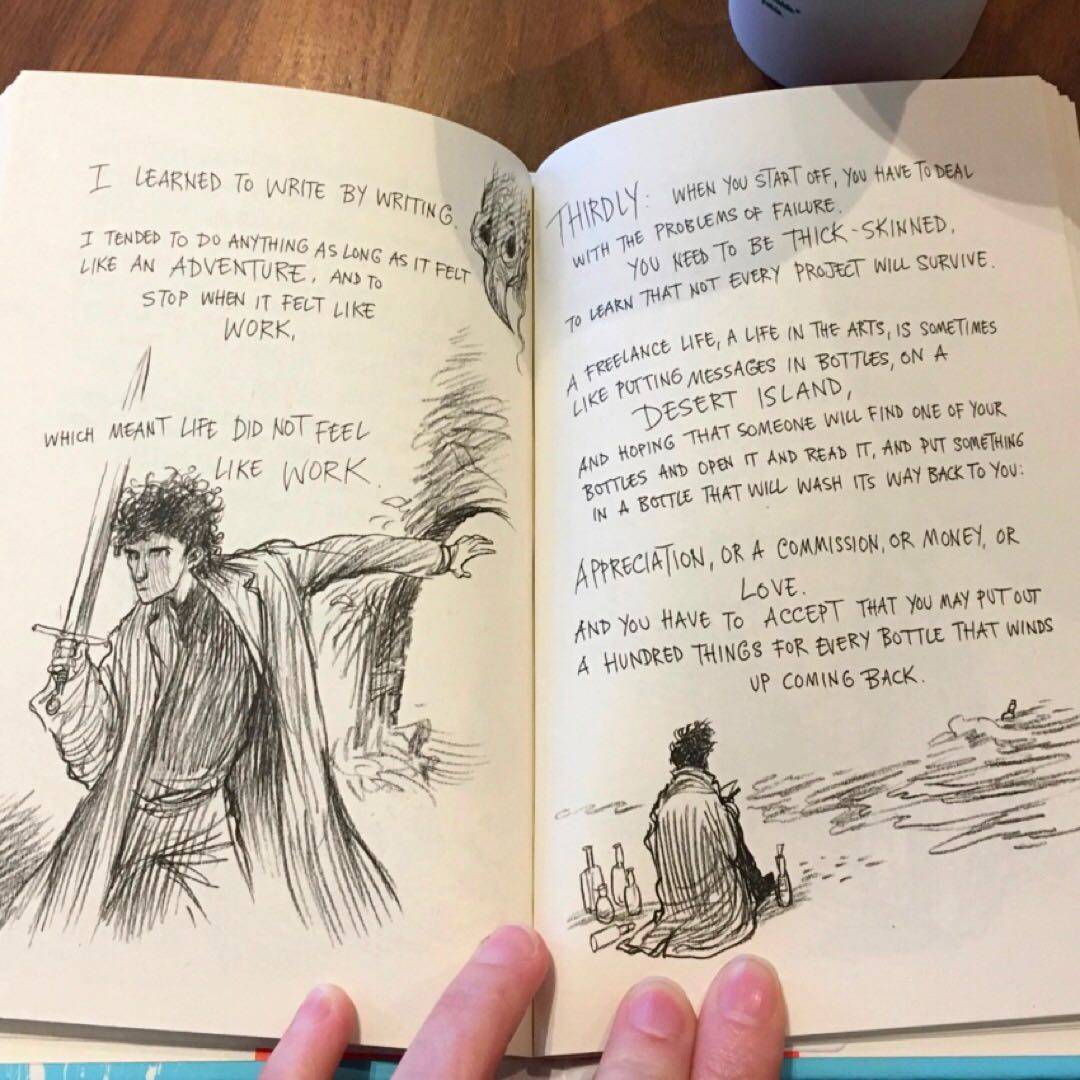 I LEARNED TO WRITE BY WRITING.
I TENDED TO DO ANYTHING AS LONG AS IT FELT
LIKE AN ADVENTURE, AND TO
STOP WHEN IT FELT LIKE
WORK,
WHICH MEANT LIFE DID NOT FEEL
LIKE WORK.
THIRDLY: WHEN YOU START OFF, YOU HAVE TO DEAL
WITH THE PROBLEMS OF FAILURE.
YOU NEED TO BE THICK-SKINNED,
TO LEARN THAT NOT EVERY PROJECT WILL SURVIVE.
A FREELANCE LIFE, A LIFE IN THE ARTS, IS SOMETIMES
LIKE PUTTING MESSAGES IN BOTTLES, ON A
DESERT ISLAND,
AND HOPING THAT SOMEONE WILL FIND ONE OF YOUR
BOTTLES AND OPEN IT AND READ IT, AND PUT SOMETHING
IN A BOTTLE THAT WILL WASH ITS WAY BACK TO YOU:
APPRECIATION, OR A COMMISSION, OR MONEY, OR
LOVE.
AND YOU HAVE TO ACCEPT THAT YOU MAY PUT OUT
A HUNDRED THINGS FOR EVERY BOTTLE THAT WINDS
UP COMING BACK.